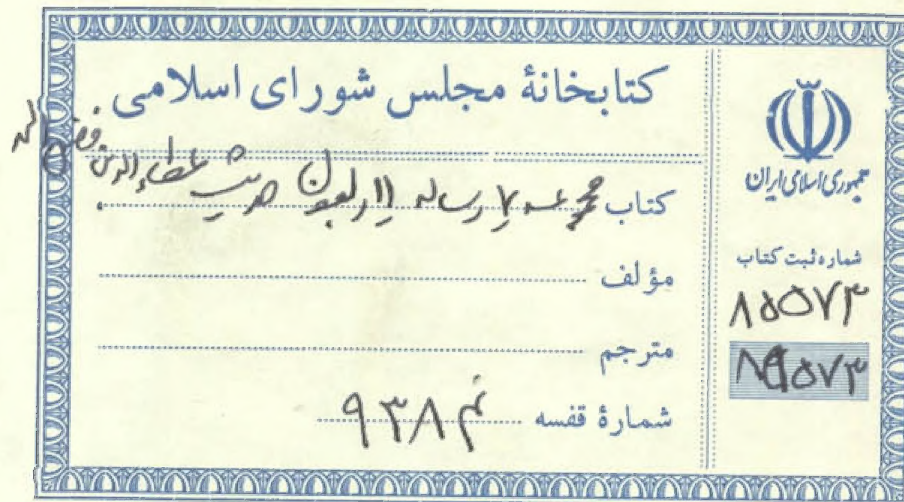 کتابخانهٔ مجلس شورای اسلامی
کتاب مجموعه ۷ رساله اربعون حدیث عطاء الدین فضل الله
مؤلف
مترجم
شمارهٔ قفسه ۹۳۸
جمهوری اسلامی ایران
شماره ثبت کتاب
۸۵۵۷۳